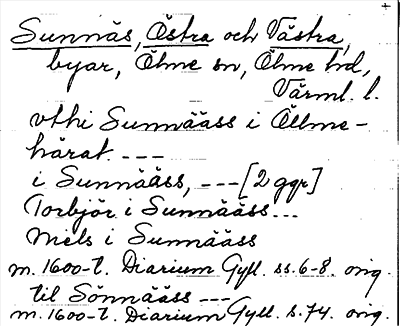 Sunnäs, Östra och Västra,
byar, Ölme sn, Ölme hd,
Värml. l.
vthi Sunnääss i Öllme-
härat. ---
i Sunnääss, --- [2 ggr]
Torbjör i Sunnääss...
Mels i Sunnääss
m. 1600-t. Diarium Gyll. ss. 6-8. orig.
til Sönnääss ---
m. 1600-t. Diarium Gyll. s. 74. orig.